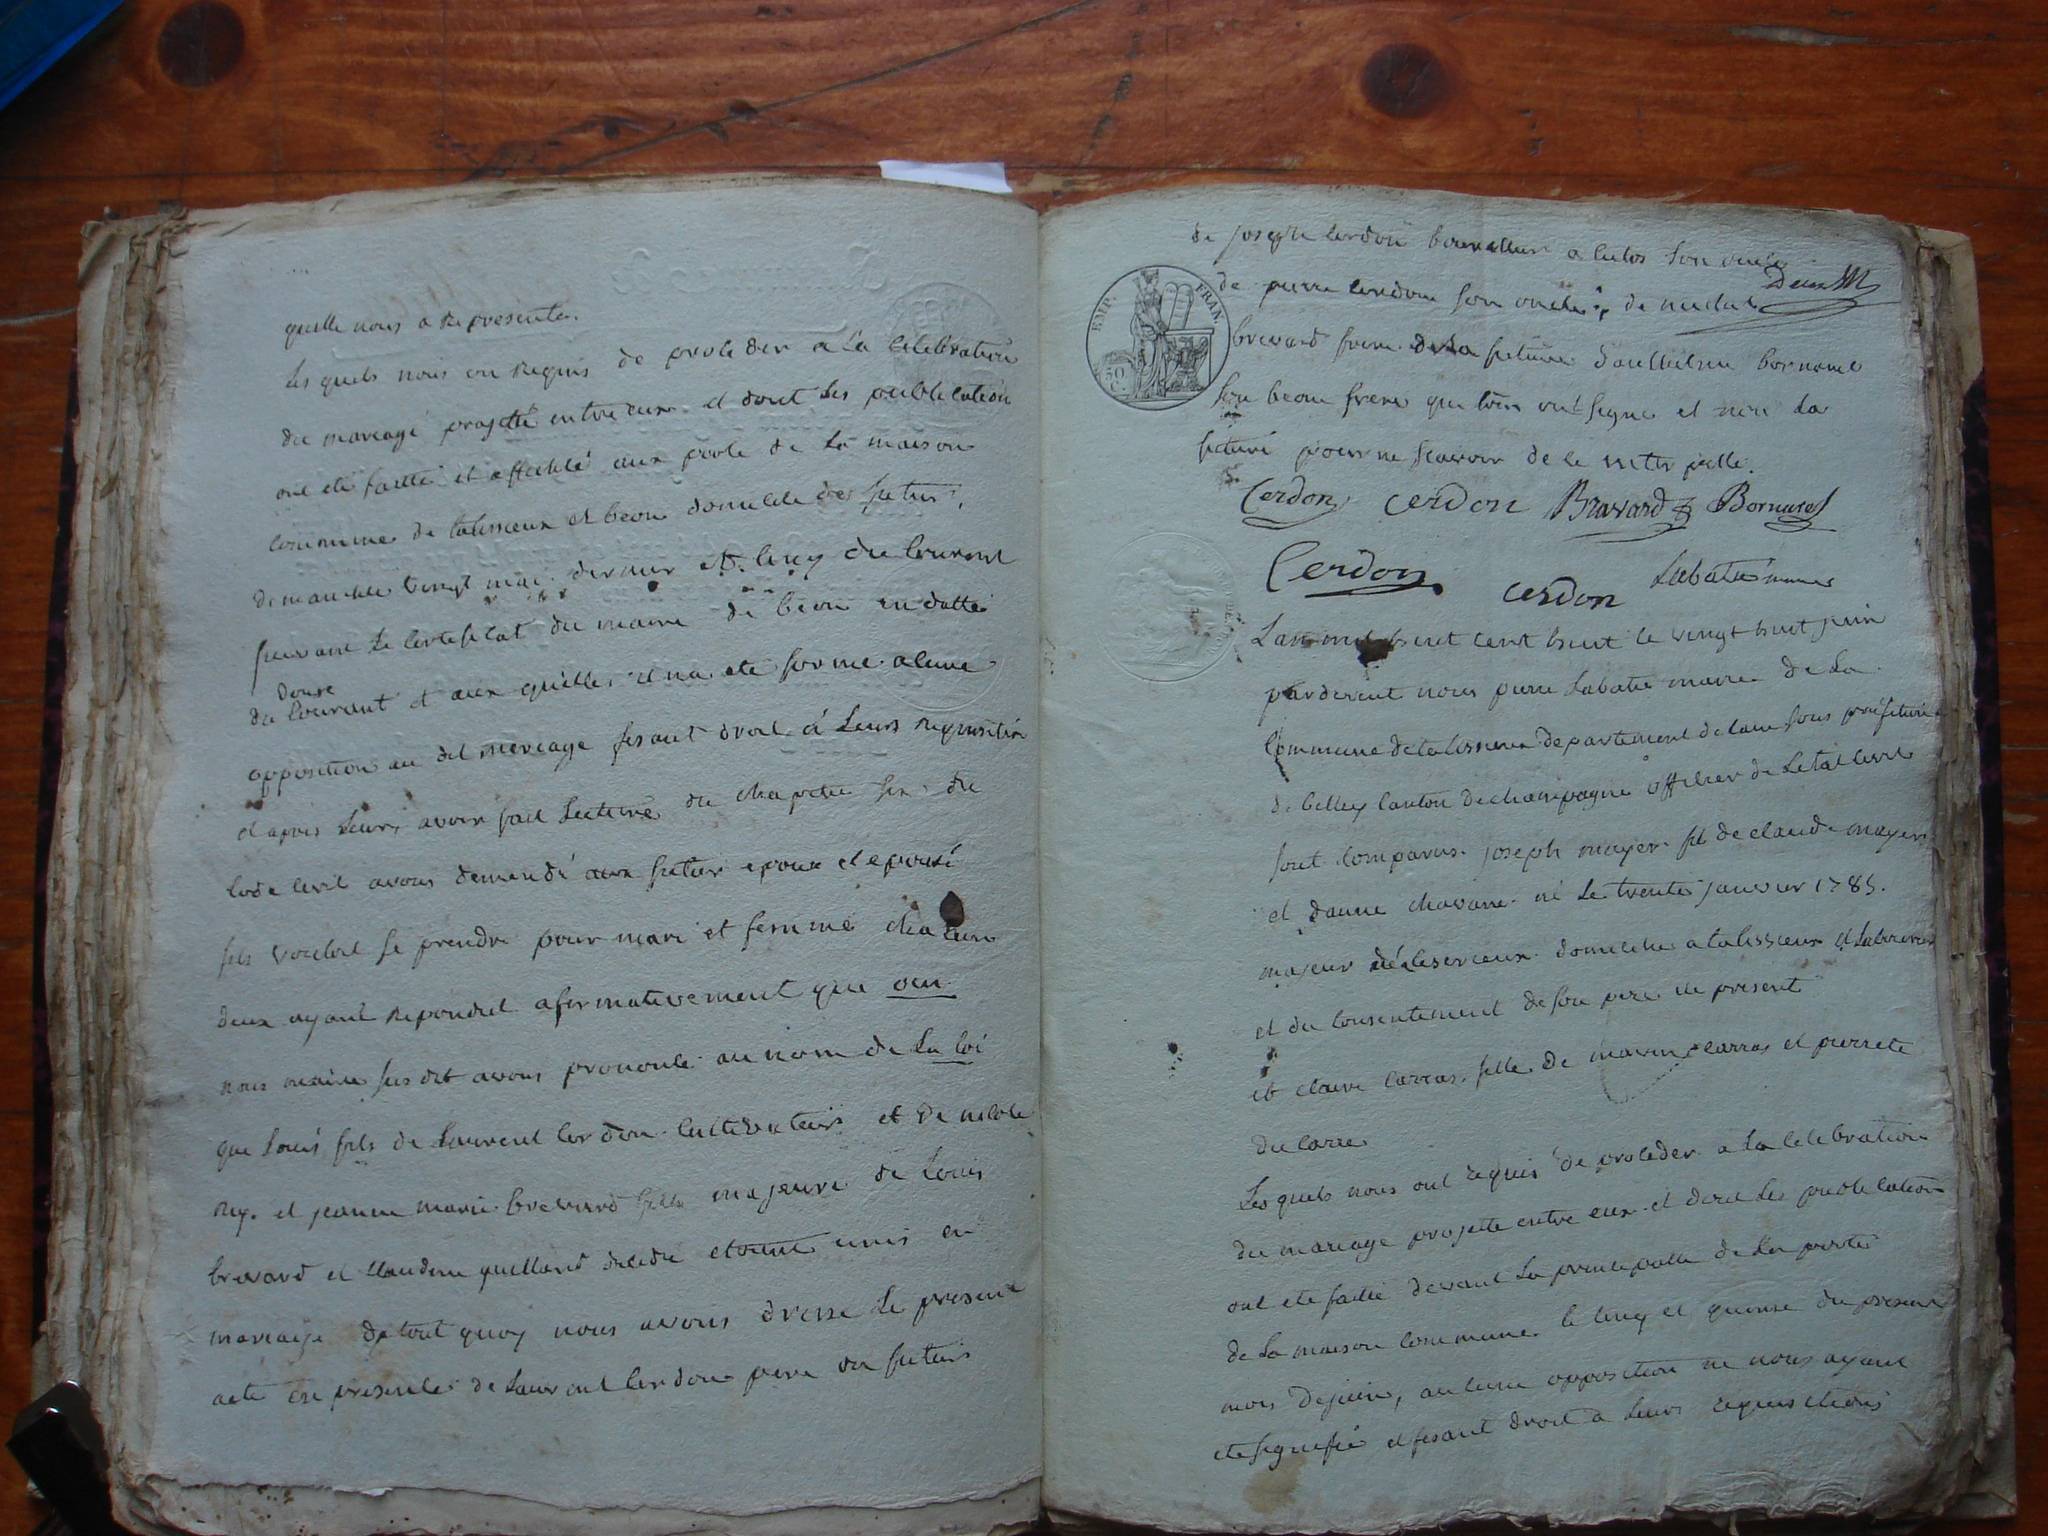 quelle nous a represente.
les quels nous on requis de proceder a la celebration
du mariage projetté entre eux et dont les publication
ont eté faitte et affiché aux porte de la maison
commune de talissieux et beon domicile des futur
dimanche vingt mai dernier et cinq du courent
suivant le certificat du maire de beon en datte
douse
du courant et aux quelles il na eté formé aucune
opposition au dit mariage fesant droit á leurs requisition
et apres leurs avoir fait lecture du chapitre six du
code civil avons demendé aux futur epoux et epouse
sils veulent se prendre pour mari et femme chacun
deux ayant repondut afirmativement que oui
nous maire sus dit avons prononcé au nom de la loi
que Louis fils de Laurent Cerdon cultivateur et de nicole
Rey et jeanne marie brevard fille majeure de Louis
brevard et Claudine guilland decede etoient unis en
mariage de tout quoy nous avons dressé le present
acte en presence de Laurent Cerdon pere du futur
de joseph Cerdon a son oncle
de pierre Cerdon son oncle, de
EMP. FRAN.
50 C.
brevard frere de la future danthelme bornaret
son beau frere qui tous ont signé et non la
future pour ne scavoir de ce
Cerdon cerdon Bravard Bornaret
Cerdon cerdon Labatie maire
Lan mil huit cent huit le vingt huit juin
par devent nous pierre Labatie maire de la
commune de talissieux departement de lain sous prefeture
de belley canton de champagne officier de letat civil
sont comparus joseph mayer fil de claude mayer
et danne chavanne né le trente janvier 1785.
majeur domicilié a talissieux
et du consentement de son pere ici present
et claire Carras fille de marin Carras et pierrete
ducarre
Les quels nous ont requis de proceder a la celebration
du mariage projette entre eux et dont les publication
ont eté faitte devant la principalle de la porte
de la maison commune le cinq et quinse du present
mois de juin, aucune opposition ne nous ayant
ete signifié et fesant droit a leurs requisitions